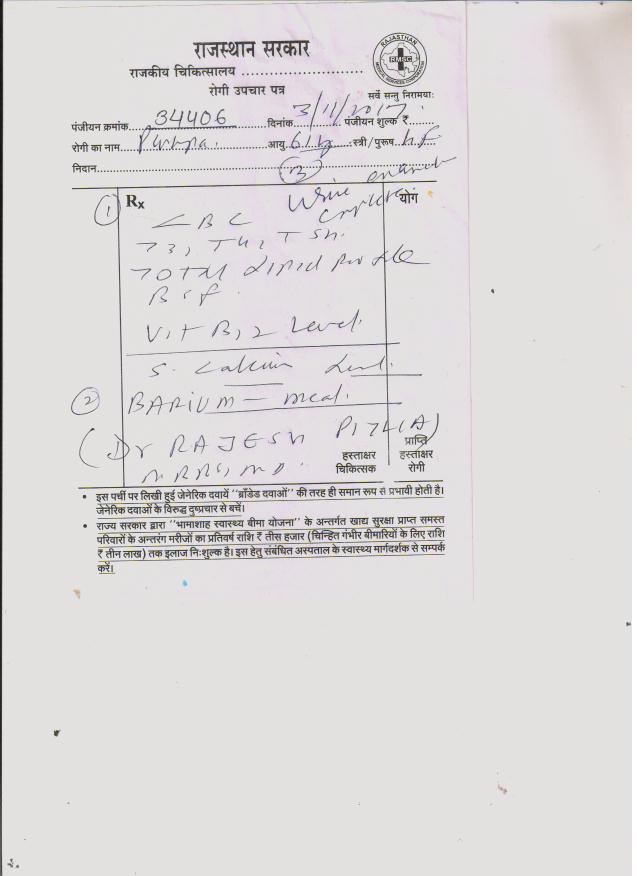 राजस्थान सरकार
RAJASTHAN
RMSC
MEDICAL SERVICES CORPORATION
राजकीय चिकित्सालय ..........................
रोगी उपचार पत्र
सर्वे सन्तु निरामयाः
पंजीयन क्रमांक.....34406.....दिनांक 3/11/2017 पंजीयन शुल्क ₹........
रोगी का नाम.....आयु.....स्त्री/पुरूष.....
निदान.....
3
1 Rx योग
CBC
T3, T4, TSH.
TOTAL Lipid Profile
BSF.
Vit B12 Level.
S. Calcium Level.
2 BARIUM - meal.
(Dr RAJESH
प्राप्ति
हस्ताक्षर हस्ताक्षर
चिकित्सक रोगी
• इस पर्ची पर लिखी हुई जेनेरिक दवायें "ब्राँडेड दवाओं" की तरह ही समान रूप से प्रभावी होती है।
जेनेरिक दवाओं के विरुद्ध दुष्प्रचार से बचें।
• राज्य सरकार द्वारा "भामाशाह स्वास्थ्य बीमा योजना" के अन्तर्गत खाद्य सुरक्षा प्राप्त समस्त
परिवारों के अन्तरंग मरीजों का प्रतिवर्ष राशि ₹ तीस हजार (चिन्हित गंभीर बीमारियों के लिए राशि
₹ तीन लाख) तक इलाज निःशुल्क है। इस हेतु संबंधित अस्पताल के स्वास्थ्य मार्गदर्शक से सम्पर्क
करें।